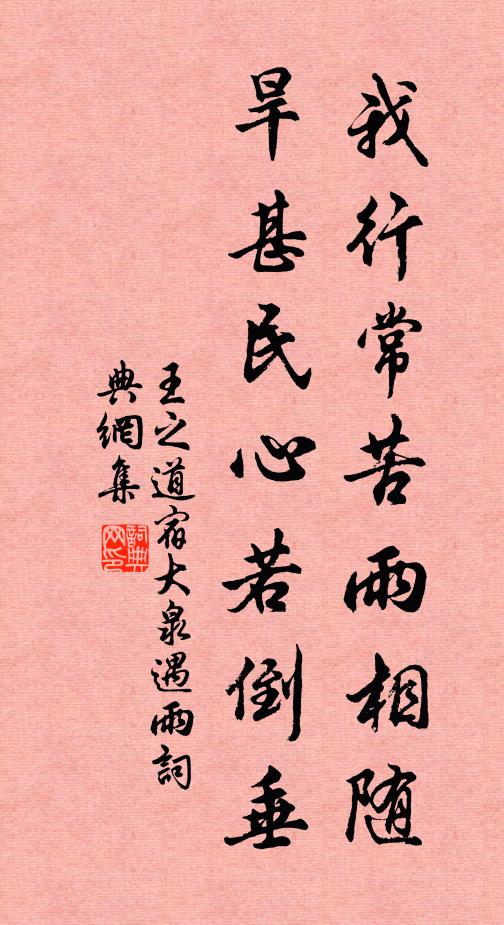 我行常苦雨相随
旱甚民心若倒垂
王之道宿大泉遇雨詞
典網集
詞典
网印